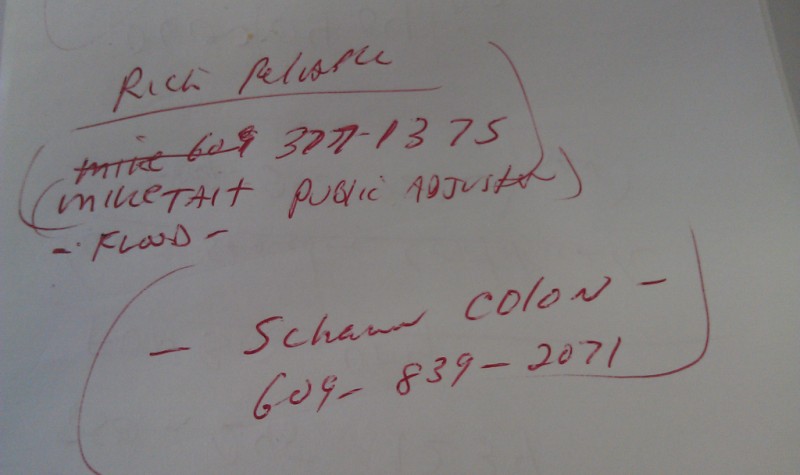 Rich Reliable
mike 609 377-1375
(MIKE TAIT PUBLIC ADJUSTER)
- FLOOD -
- Schann COLON -
609- 839-2071